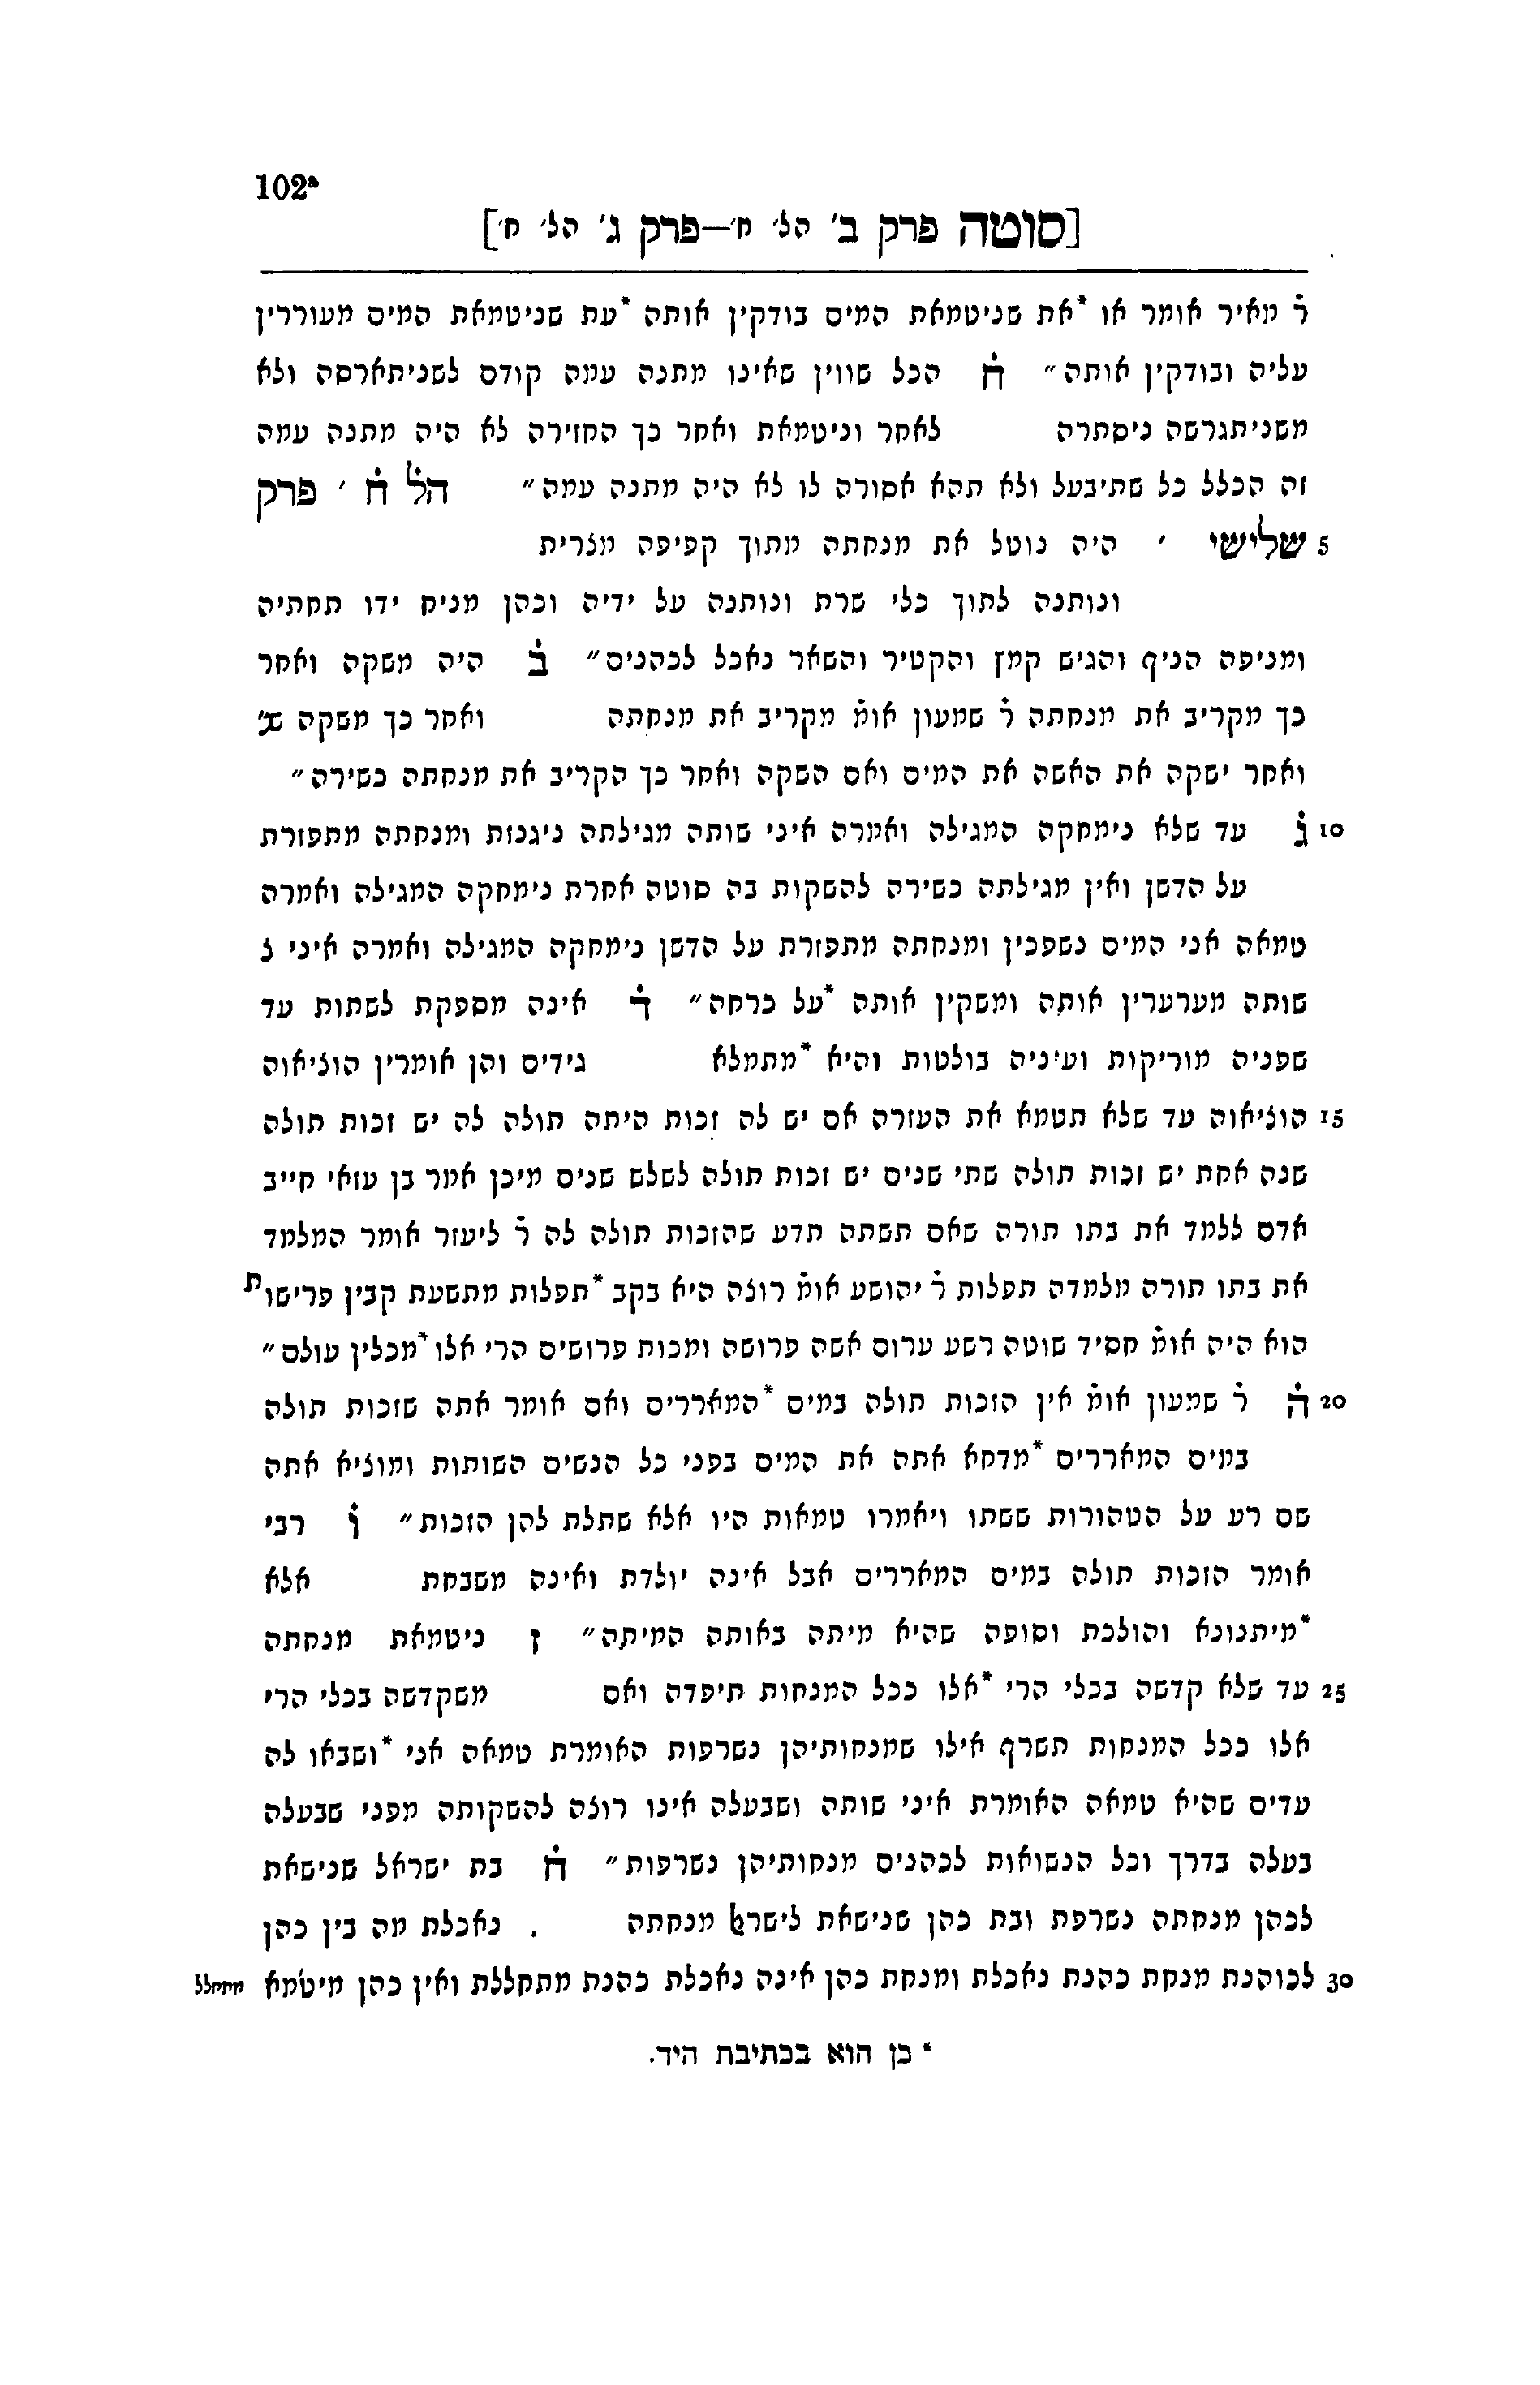 102ª
[סוטה פרק ב׳ הל׳ ח׳—פרק ג׳ הל׳ ח׳]
ר̇ מאיר אומר או *את שניטמאת המים בודקין אותה *עת שניטמאת המים מעוררין
עליה ובודקין אותה״ ח̇ הכל שווין שאינו מתנה עמה קודם לשניתארסה ולא
משניתגרשה ניסתרה לאחר וניטמאת ואחר כך החזירה לא היה מתנה עמה
זה הכלל כל שתיבעל ולא תהא אסורה לו לא היה מתנה עמה״ הל̇ ח̇ ׳ פרק
5 שלישי ׳ היה נוטל את מנחתה מתוך קפיפה מצרית
ונותנה לתוך כלי שרת ונותנה על ידיה וכהן מניח ידו תחתיה
ומניפה הניף והגיש קמץ והקטיר והשאר נאכל לכהנים״ ב̇ היה משקה ואחר
כך מקריב את מנחתה ר̇ שמעון אומ̇ מקריב את מנחתה ואחר כך משקה שנ׳
ואחר ישקה את האשה את המים ואם השקה ואחר כך הקריב את מנחתה כשירה״
10 ג̇ עד שלא נימחקה המגילה ואמרה איני שותה מגילתה ניגנזת ומנחתה מתפזרת
על הדשן ואין מגילתה כשירה להשקות בה סוטה אחרת נימחקה המגילה ואמרה
טמאה אני המים נשפכין ומנחתה מתפזרת על הדשן נימחקה המגילה ואמרה איני
שותה מערערין אותה ומשקין אותה *על כרחה״ ד̇ אינה מספקת לשתות עד
שפניה מוריקות ועיניה בולטות והיא *מתמלא גידים והן אומרין הוציאוה
15 הוציאוה עד שלא תטמא את העזרה אם יש לה זכות היתה תולה לה יש זכות תולה
שנה אחת יש זכות תולה שתי שנים יש זכות תולה לשלש שנים מיכן אמר בן עזאי חייב
אדם ללמד את בתו תורה שאם תשתה תדע שהזכות תולה לה ר̇ ליעזר אומר המלמד
את בתו תורה מלמדה תפלות ר̇ יהושע אומ̇ רוצה היא בקב *תפלות מתשעת קבין פרישות
הוא היה אומ̇ חסיד שוטה רשע ערום אשה פרושה ומכות פרושים הרי אלו *מכלין עולם״
20 ה̇ ר̇ שמעון אומ̇ אין הזכות תולה במים *המאררים ואם אומר אתה שזכות תולה
במים המאררים *מדחא אתה את המים בפני כל הנשים השותות ומוציא אתה
שם רע על הטהורות ששתו ויאמרו טמאות היו אלא שתלת להן הזכות״ ו̇ רבי
אומר הזכות תולה במים המאררים אבל אינה יולדת ואינה משבחת אלא
*מיתנונא והולכת וסופה שהיא מיתה באותה המיתה״ ז ניטמאת מנחתה
25 עד שלא קדשה בכלי הרי *אלו ככל המנחות תיפדה ואם משקדשה בכלי הרי
אלו ככל המנחות תשרף אילו שמנחותיהן נשרפות האומרת טמאה אני *ושבאו לה
עדים שהיא טמאה האומרת איני שותה ושבעלה אינו רוצה להשקותה מפני שבעלה
בעלה בדרך וכל הנשואות לכהנים מנחותיהן נשרפות״ ח̇ בת ישראל שנישאת
לכהן מנחתה נשרפת ובת כהן שנישאת לישרל מנחתה . נאכלת מה בין כהן
30 לכוהנת מנחת כהנת נאכלת ומנחת כהן אינה נאכלת כהנת מתחללת ואין כהן מיטמא מתחלל
* כן הוא בכתיבת היד.